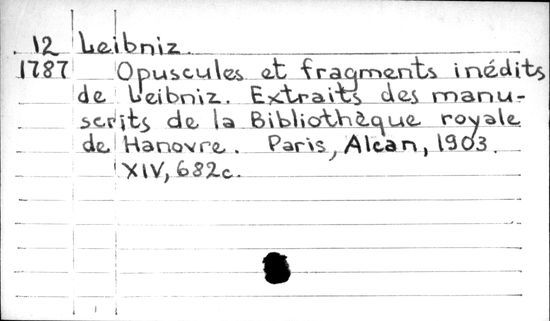 12 Leibniz.
1787 Opuscules et fragments inédits
de Leibniz. Extraits des manu-
scrits de la Bibliothèque royale
de Hanovre. Paris, Alcan, 1903.
XIV, 682c.